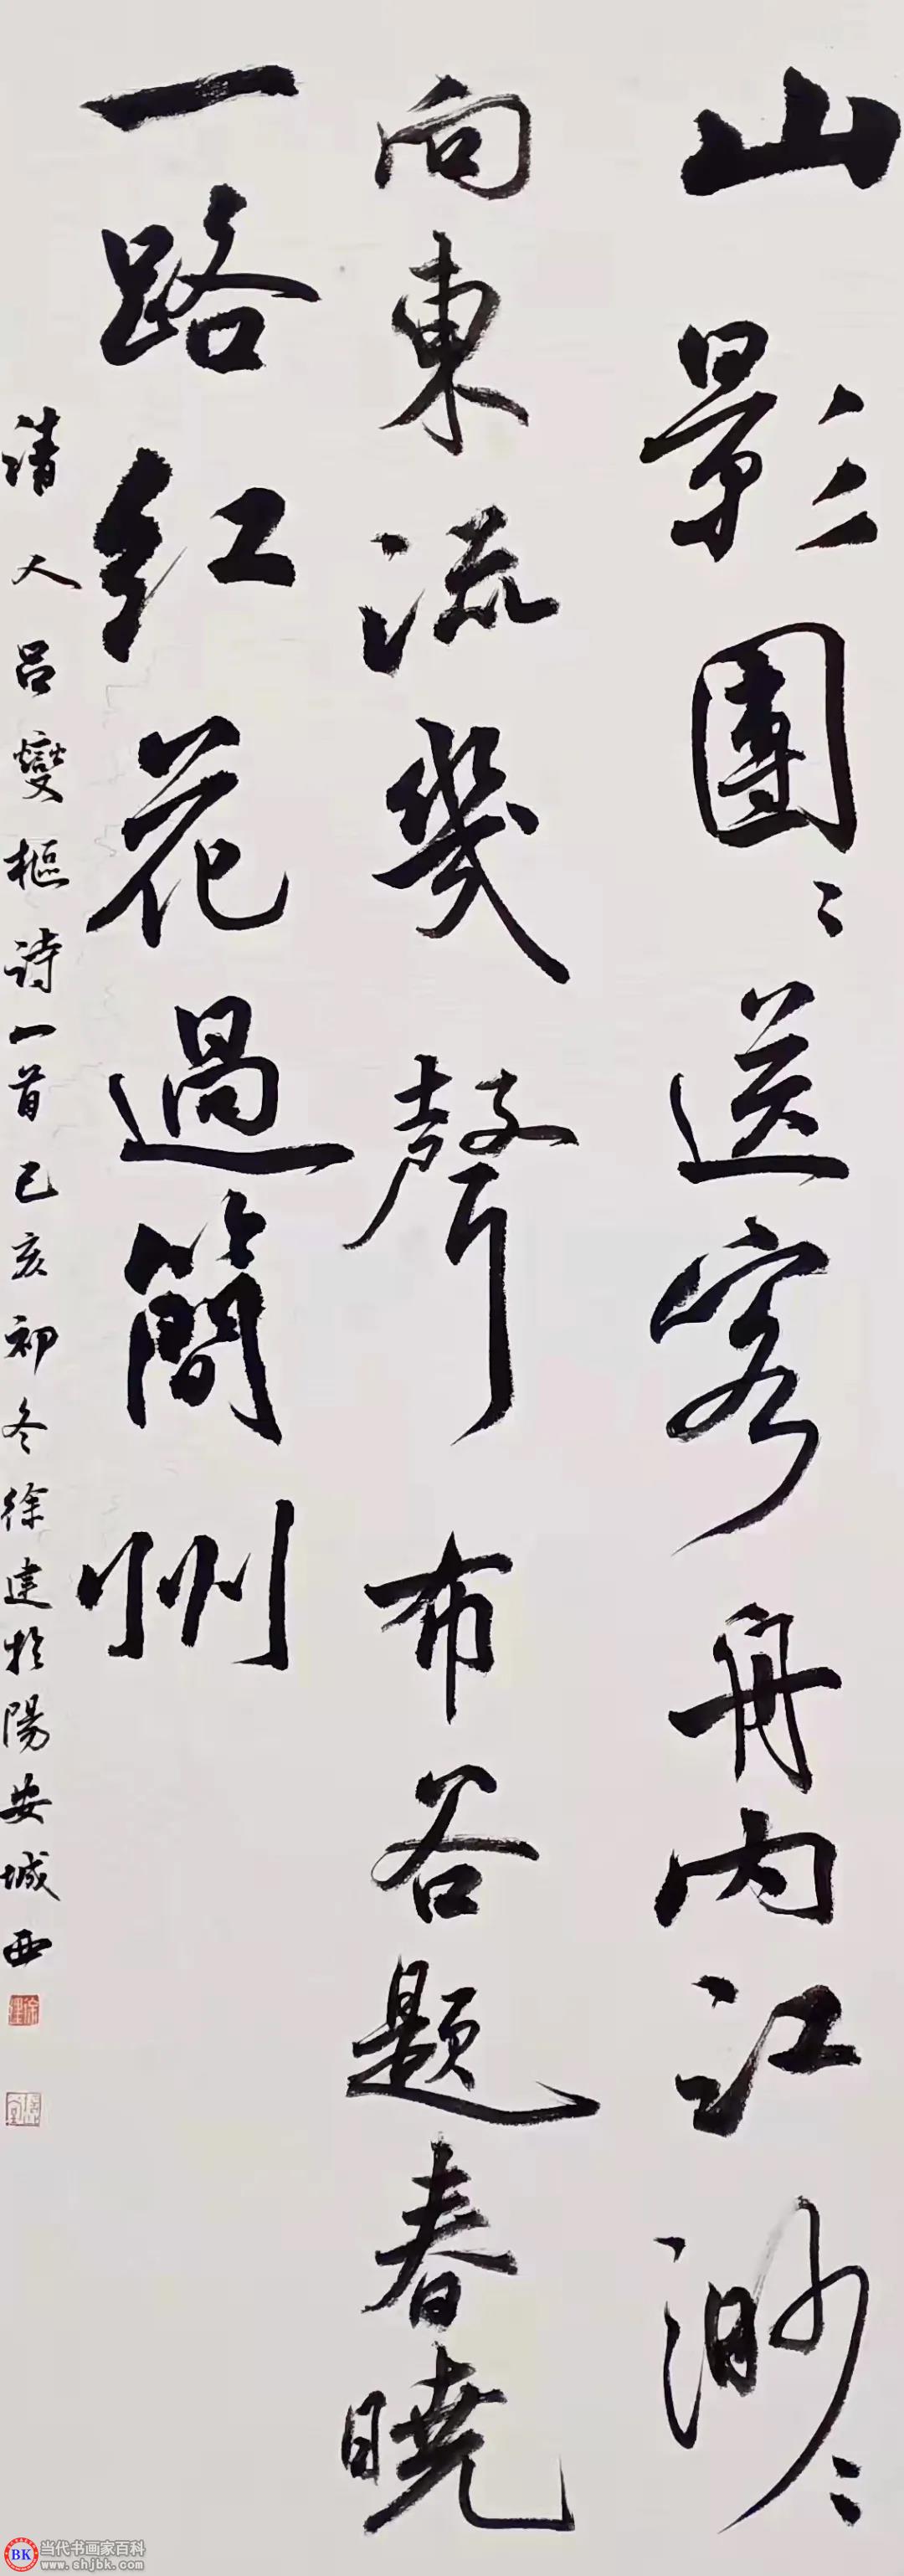 山影團〻送客舟内江渺〻
向東流幾聲布谷題春曉
一路红花過簡州
清人吕燮樞诗一首己亥初冬徐建於陽安城西
徐建
BK 当代书画家百科
www.shjbk.com